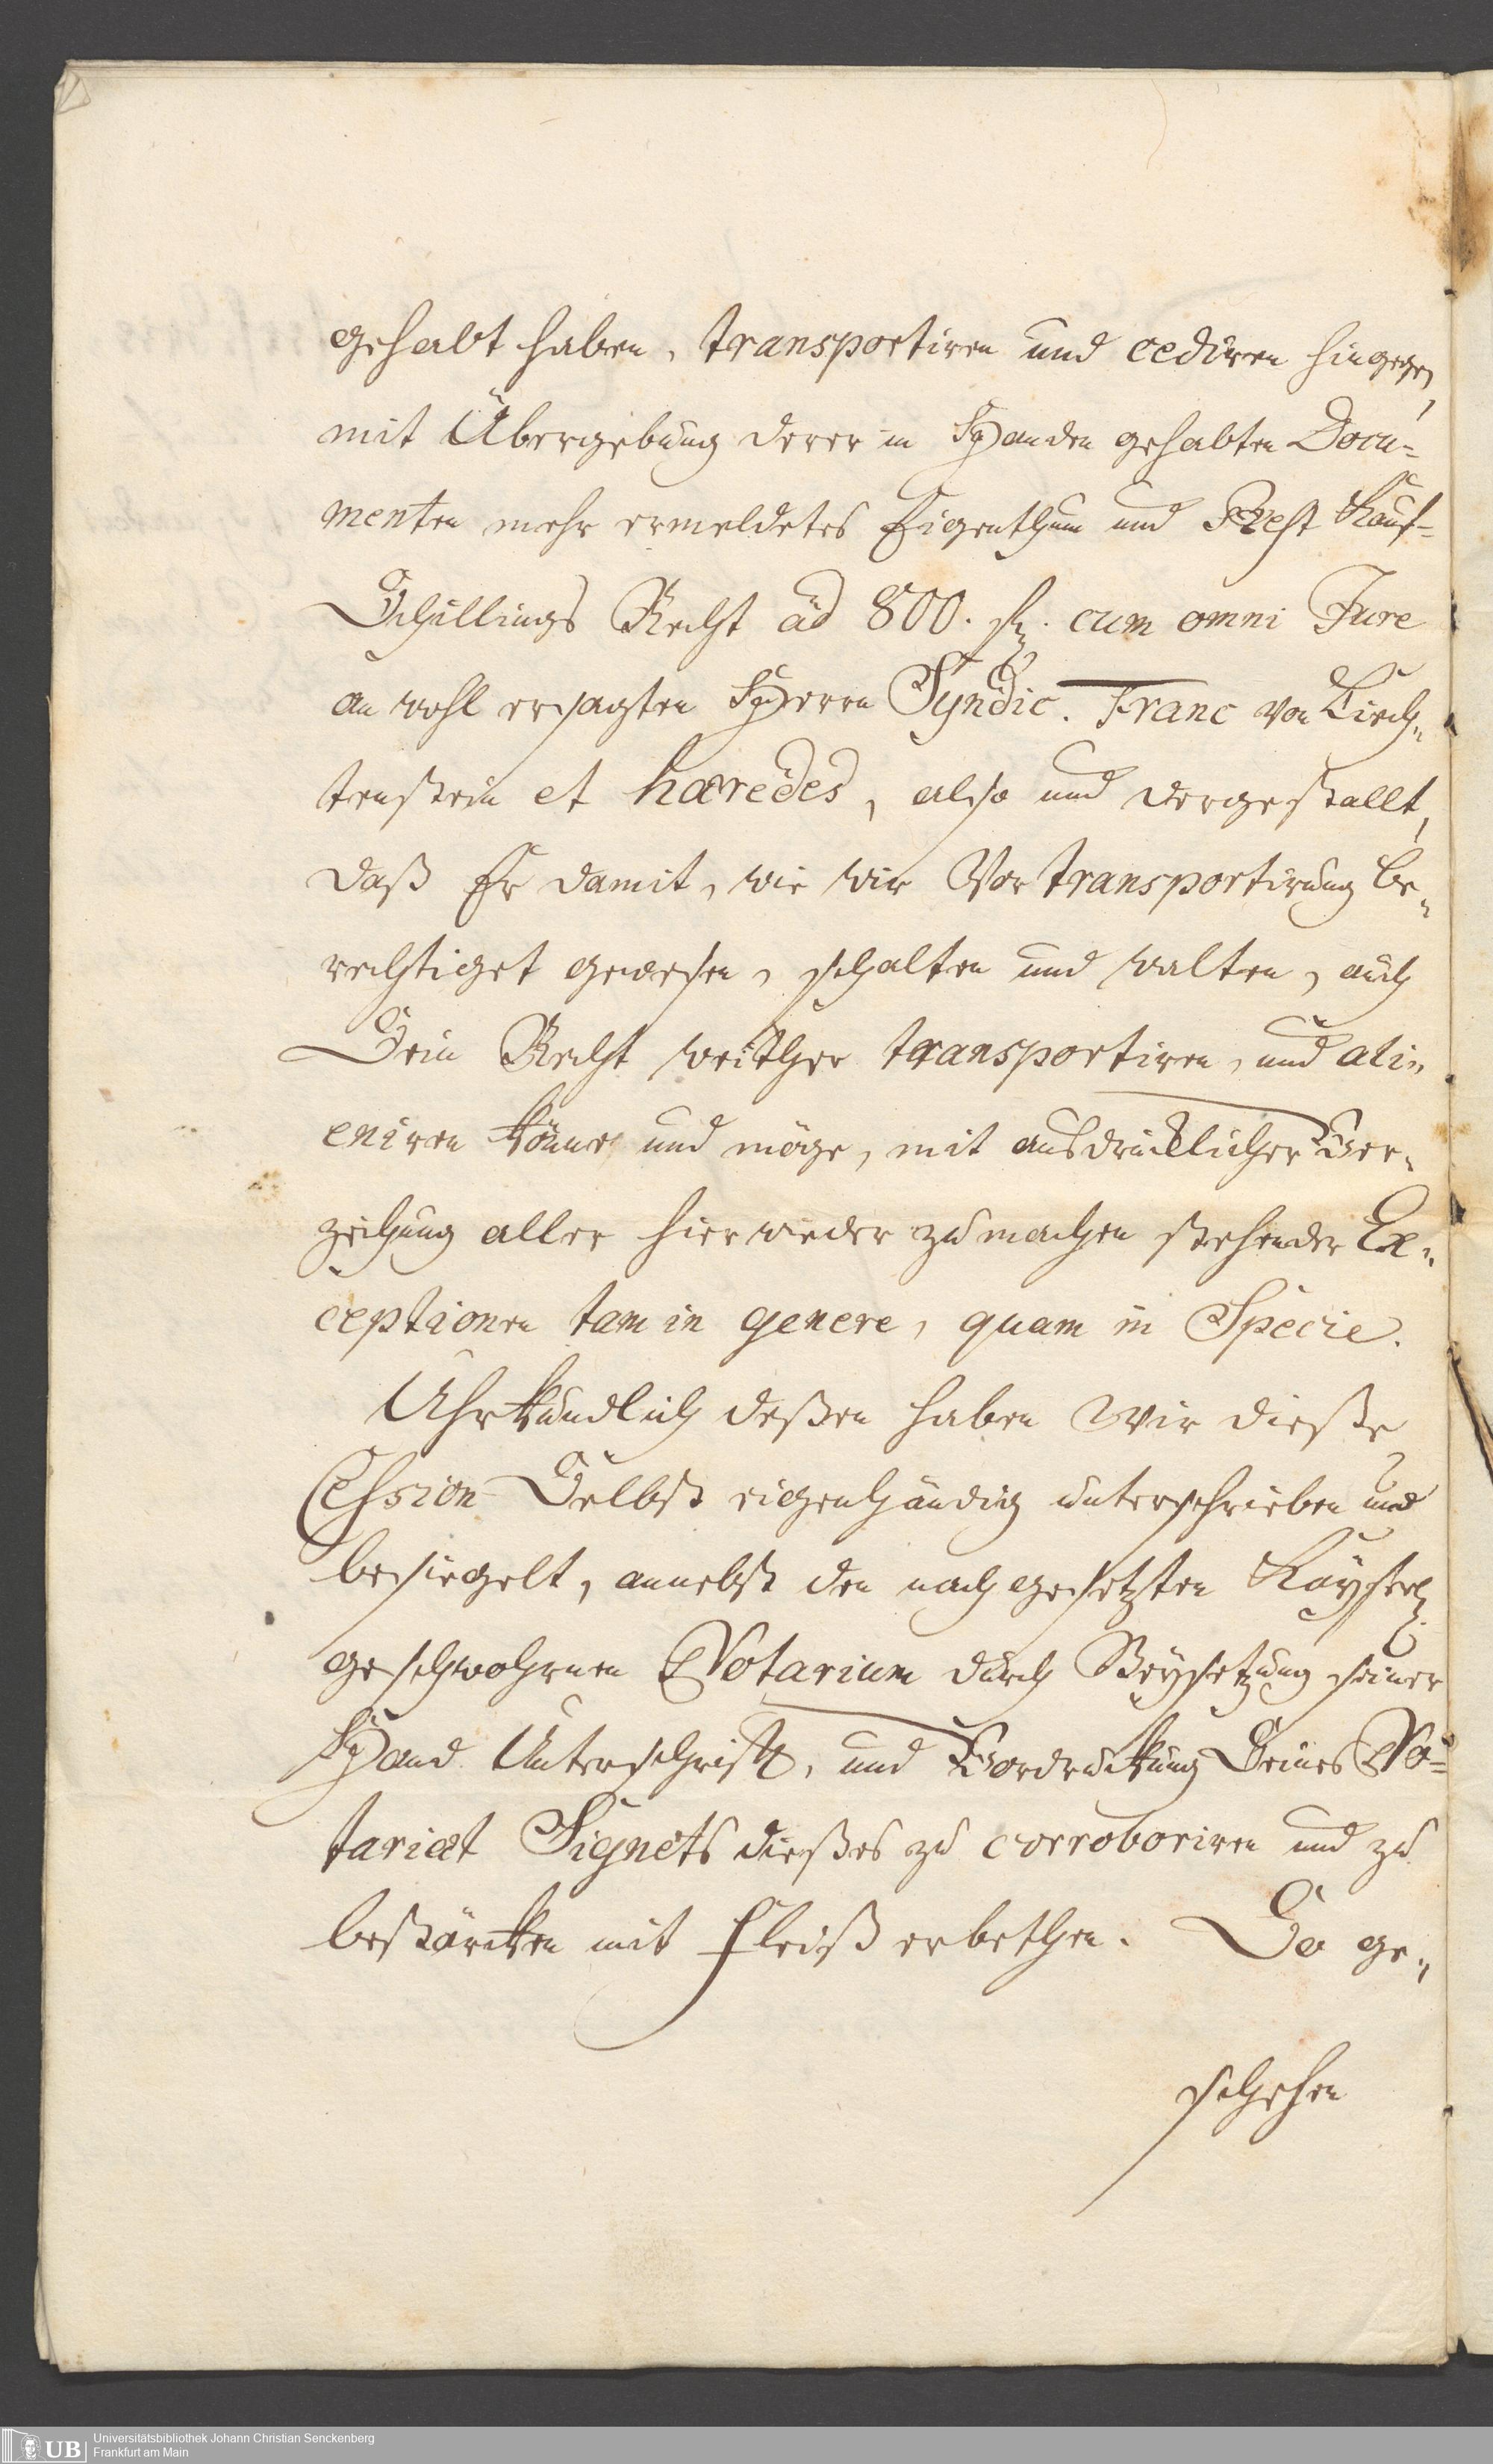 gehabt haben, transportiren und cediren hingegen,
mit Übergebung derer in Handen gehabten Docu-
menten mehr ermeldetes Eigenthum und Rest Kauf-
Schillings Recht ad 800. fl. cum omni Jure
an wohl ersagten Herrn Syndic. Franc von Liech-
tenstein et hæredes, also und dergestallt,
daß Er damit, wie wir Vor transportirung be-
rechtiget gewesen, schalten und walten, auch
Sein Recht weither transportiren, und ali-
eniren könne und möge, mit ausdrücklicher Ver-
zeihung aller hierwieder zu machen stehender Ex-
ceptionen tam in genere, quam in Specie.
Uhrkundlich deßen haben Wir dieße
Cession Selbst eigenhändig unterschrieben und
besiegelt, annebst den nachgesetzten Kayserl.
geschwohrnen Notarium durch Beysetzung seiner
Hand Unterschrifft, und Vordruckung Seines No-
tariat Signets dießes zu corroboriren und zu
bestärcken mit Fleiß erbethen. So ge-
schehen
UB Universitätsbibliothek Johann Christian Senckenberg
Frankfurt am Main